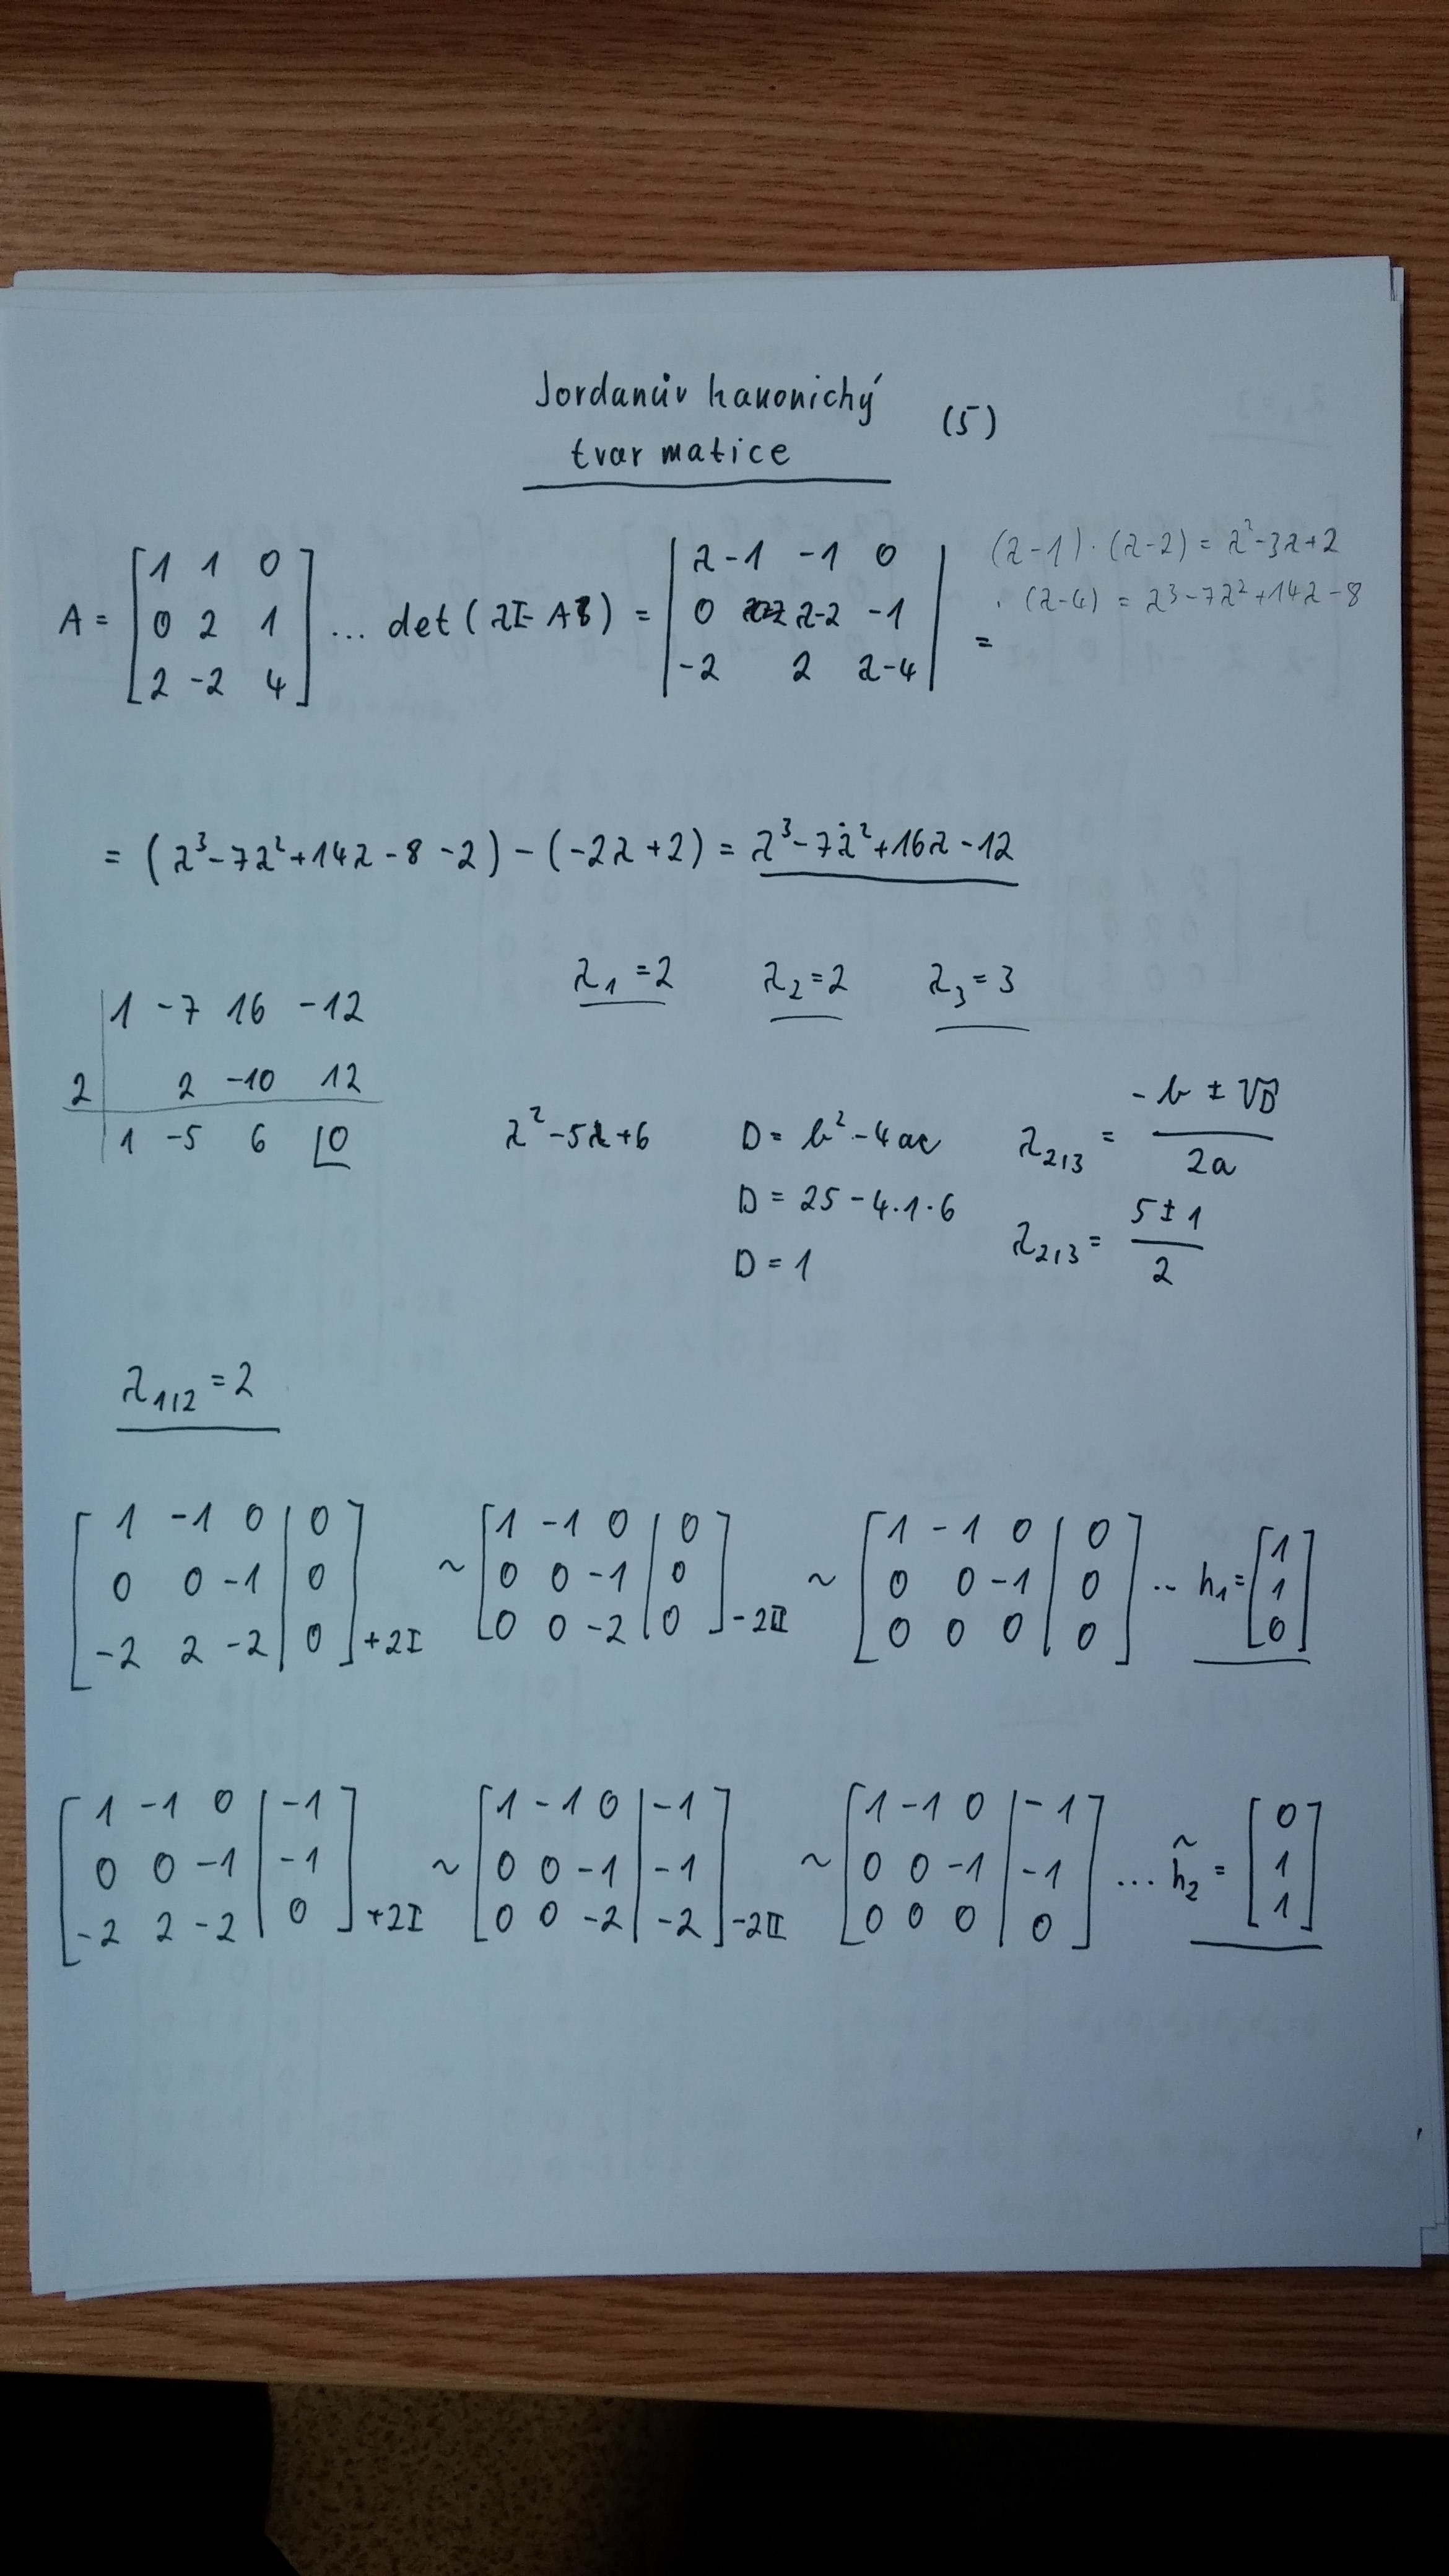 Jordanův kanonický
tvar matice (5)
A = [1 1 0; 0 2 1; 2 -2 4] ... det(λI-A) = |λ-1 -1 0; 0 λ-2 -1; -2 2 λ-4| =
(λ-1)·(λ-2) = λ²-3λ+2
·(λ-4) = λ³-7λ²+14λ-8
= (λ³-7λ²+14λ-8-2)-(-2λ+2) = λ³-7λ²+16λ-12
λ₁=2 λ₂=2 λ₃=3
1 -7 16 -12
2 2 -10 12
1 -5 6 0
λ²-5λ+6
D = b²-4ac
D = 25-4·1·6
D = 1
λ₂,₃ = (-b ± √D)/2a
λ₂,₃ = (5±1)/2
λ₁,₂ = 2
[1 -1 0 | 0; 0 0 -1 | 0; -2 2 -2 | 0] +2I ~ [1 -1 0 | 0; 0 0 -1 | 0; 0 0 -2 | 0] -2II ~ [1 -1 0 | 0; 0 0 -1 | 0; 0 0 0 | 0] .. h₁ = [1; 1; 0]
[1 -1 0 | -1; 0 0 -1 | -1; -2 2 -2 | 0] +2I ~ [1 -1 0 | -1; 0 0 -1 | -1; 0 0 -2 | -2] -2II ~ [1 -1 0 | -1; 0 0 -1 | -1; 0 0 0 | 0] ... h̃₂ = [0; 1; 1]